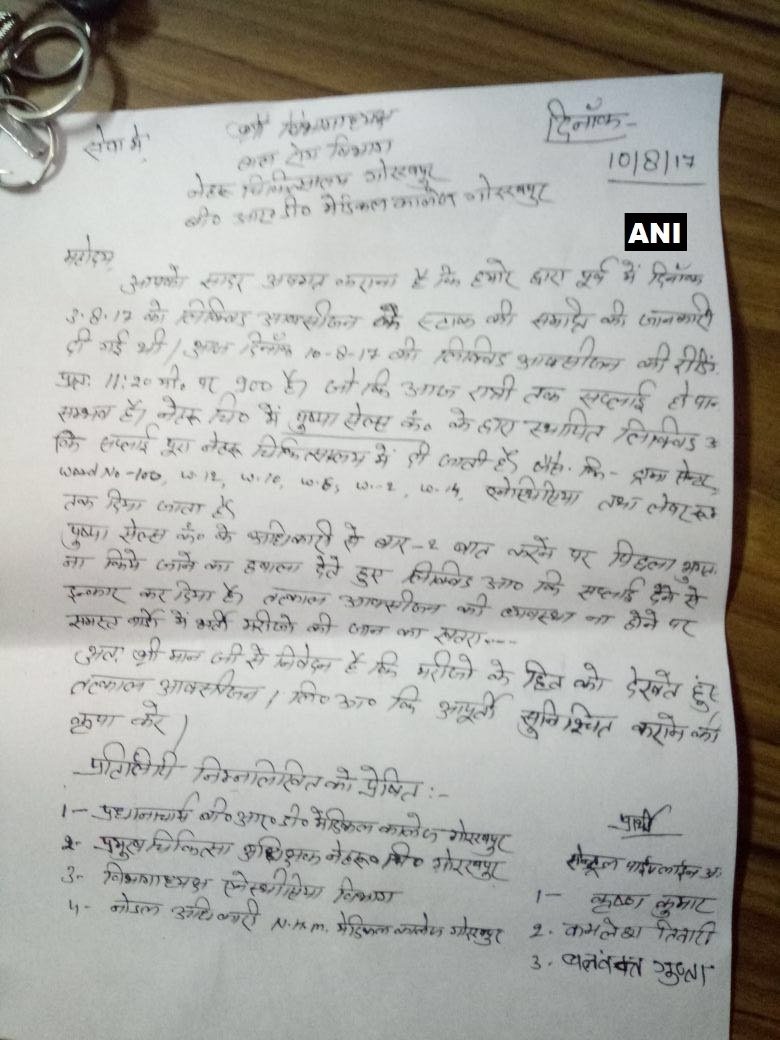 सेवा में,
श्री विभागाध्यक्ष
बाल रोग विभाग
नेहरू चिकित्सालय गोरखपुर
बी० आर० डी० मेडिकल कालेज गोरखपुर
दिनाँक-
10/8/17
ANI
महोदय,
आपको सादर अवगत कराना है कि हमारे द्वारा पूर्व में दिनाँक
3-8-17 को लिक्विड आक्सीजन के स्टाक की समाप्ति की जानकारी
दी गई थी। आज दिनाँक 10-8-17 की लिक्विड आक्सीजन की रीडिंग
प्रातः 11:20 मी० पर 900 है। जो कि आज रात्री तक सप्लाई हो पाना
सम्भव है। नेहरू चि० में पुष्पा सेल्स कं० के द्वारा स्थापित लिक्विड
कि सप्लाई पूरा नेहरू चिकित्सालय में दी जाती है। जैसे कि - ट्रामा सेन्टर,
Ward No-100, w-12, w-10, w-8, w-2, w-14, एनेस्थिसिया तथा लेबर रूम
तक दिया जाता है।
पुष्पा सेल्स कं० के अधिकारी से बार-2 बात करने पर पिछला
ना किये जाने का हवाला देते हुए लिक्विड आ० कि सप्लाई देने से
इन्कार कर दिया है। तत्काल आक्सीजन की व्यवस्था ना होने पर
समस्त वार्डो में भर्ती मरीजो की जान का खतरा....
अतः श्री मान जी से निवेदन है कि मरीजो के हित को देखते हुए
तत्काल आक्सीजन / लि० आ० कि आपूर्ती सुनिश्चित कराने की
कृपा करें।
प्रतिलिपी निम्नलिखित को प्रेषित :-
1- प्रधानाचार्य बी० आर० डी० मेडिकल कालेज गोरखपुर
2- प्रमुख चिकित्सा अधिक्षक नेहरू चि० गोरखपुर
3- विभागाध्यक्ष एनेस्थीसिया विभाग
4- नोडल अधिकारी N.H.M. मेडिकल कालेज गोरखपुर
प्रार्थी
सेन्ट्रल पाईपलाईन
1- कृष्ण कुमार
2. कमलेश तिवारी
3. बलवन्त गुप्ता